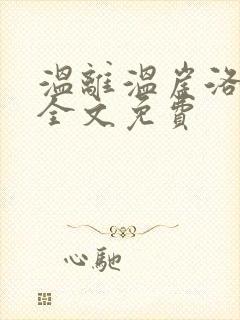 溫離溫崖洛
全文免費
心馳